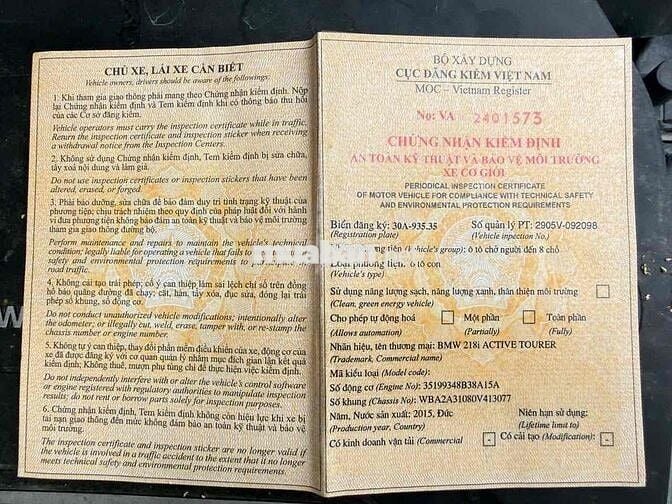 CHỦ XE, LÁI XE CẦN BIẾT
Vehicle owners, drivers should be aware of the followings:
1. Khi tham gia giao thông phải mang theo Chứng nhận kiểm định. Nộp
lại Chứng nhận kiểm định và Tem kiểm định khi có thông báo thu hồi
của các Cơ sở đăng kiểm.
Vehicle operators must carry the inspection certificate while in traffic.
Return the inspection certificate and inspection sticker when receiving
a withdrawal notice from the Inspection Centers.
2. Không sử dụng Chứng nhận kiểm định, Tem kiểm định bị sửa chữa,
tẩy xoá nội dung và làm giả.
Do not use inspection certificates or inspection stickers that have been
altered, erased, or forged.
3. Phải bảo dưỡng, sửa chữa để bảo đảm duy trì tình trạng kỹ thuật của
phương tiện; chịu trách nhiệm theo quy định của pháp luật đối với hành
vi đưa phương tiện không bảo đảm an toàn kỹ thuật và bảo vệ môi trường
tham gia giao thông đường bộ.
Perform maintenance and repairs to maintain the vehicle's technical
condition; legally liable for operating a vehicle that fails to
safety and environmental protection requirements
road traffic.
4. Không cải tạo trái phép; cố ý can thiệp làm sai lệch chỉ số trên đồng
hồ báo quãng đường đã chạy; cắt, hàn, tẩy xóa, đục sửa, đóng lại trái phép
số khung, số động cơ.
Do not conduct unauthorized vehicle modifications; intentionally alter
the odometer; or illegally cut, weld, erase, tamper with, or re-stamp the
chassis number or engine number.
5. Không tự ý can thiệp, thay đổi phần mềm điều khiển của xe, động cơ của
xe đã được đăng ký với cơ quan quản lý nhằm mục đích gian lận kết quả
kiểm định; Không thuê, mượn phụ tùng chỉ để thực hiện việc kiểm định.
Do not independently interfere with or alter the vehicle's control software
or engine registered with regulatory authorities to manipulate inspection
results; do not rent or borrow parts solely for inspection purposes.
6. Chứng nhận kiểm định, Tem kiểm định không còn hiệu lực khi xe bị
tai nạn giao thông đến mức không đảm bảo an toàn kỹ thuật và bảo vệ
môi trường.
The inspection certificate and inspection sticker are no longer valid if
the vehicle is involved in a traffic accident to the extent that it no longer
meets technical safety and environmental protection requirements.
BỘ XÂY DỰNG
CỤC ĐĂNG KIỂM VIỆT NAM
MOC – Vietnam Register
No: VA 2401573
CHỨNG NHẬN KIỂM ĐỊNH
AN TOÀN KỸ THUẬT VÀ BẢO VỆ MÔI TRƯỜNG
XE CƠ GIỚI
PERIODICAL INSPECTION CERTIFICATE
OF MOTOR VEHICLE FOR COMPLIANCE WITH TECHNICAL SAFETY
AND ENVIRONMENTAL PROTECTION REQUIREMENTS
Biển đăng ký: 30A-935.35 Số quản lý PT: 2905V-092098
(Registration plate) (Vehicle inspection No.)
ng tiện (Vehicle's group): ô tô chở người đến 8 chỗ
Loại phương tiện: ô tô con
(Vehicle's type)
Sử dụng năng lượng sạch, năng lượng xanh, thân thiện môi trường
(Clean, green energy vehicle)
Cho phép tự động hoá Một phần Toàn phần
(Allows automation) (Partially) (Fully)
Nhãn hiệu, tên thương mại: BMW 218i ACTIVE TOURER
(Trademark, Commercial name)
Mã kiểu loại (Model code):
Số động cơ (Engine No): 35199348B38A15A
Số khung (Chassis No): WBA2A31080V413077
Năm, Nước sản xuất: 2015, Đức Niên hạn sử dụng:
(Production year, Country) (Lifetime limit to)
Có kinh doanh vận tải (Commercial - Có cải tạo (Modification): -